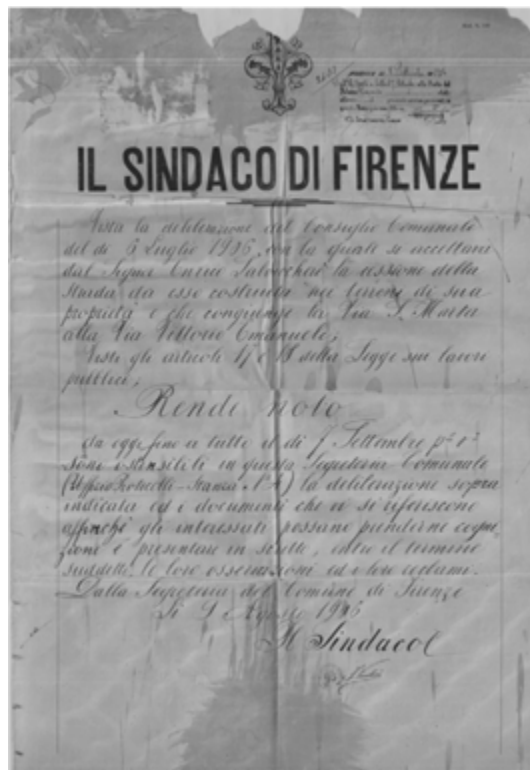 IL SINDACO DI FIRENZE
Vista la deliberazione del Consiglio Comunale
del dì 6 Luglio 1906, con la quale si accettava
dal Signor Enrico la cessione della
strada da esso costruita nei terreni di sua
proprietà e che congiunge la Via S. Marta
alla Via Vittorio Emanuele;
Visti gli articoli 17 e 18 della Legge sui lavori
pubblici;
Rende noto
da oggi fino a tutto il dì 7 Settembre
sono ostensibili in questa Segreteria Comunale
(Ufficio Protocollo - Stanza ) la deliberazione sopra
indicata ed i documenti che vi si riferiscono
affinchè gli interessati possano prenderne cogni-
zione e presentare in scritto, entro il termine
suddetto, le loro osservazioni ed i loro reclami.
Dalla Segreteria del Comune di Firenze
Li Agosto 1906
Il Sindaco